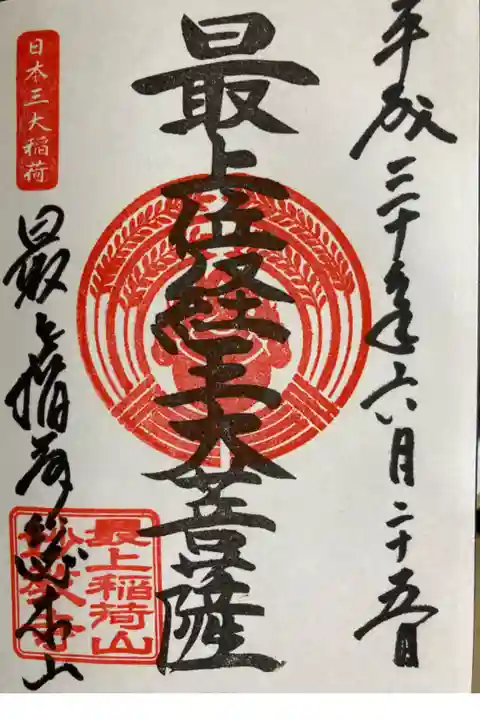 平成三十年六月二十五日
最上位経王大菩薩
日本三大稲荷
最上稲荷総本山
最上稲荷山
妙教寺